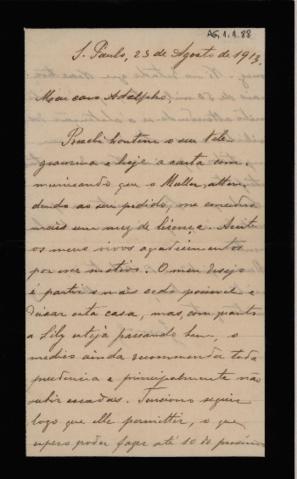 AG.1.1.88
S. Paulo, 23 de Agosto de 1913.
Meu caro Adolpho,
Recebi hontem o seu tele-
gramma e hoje a carta com-
municando que o Muller, atten-
dendo ao seu pedido, me concedeu
mais um mez de licença. Aceite
os meus vivos agradecimentos
por esse motivo. O meu desejo
é partir o mais cedo possivel e
deixar esta casa, mas, com quanto
a Lily esteja passando bem, o
medico ainda recommenda toda
prudencia e principalmente não
subir escadas. Tenciono seguir
logo que elle permittir, o que
espero poder fazer até 10 do proximo